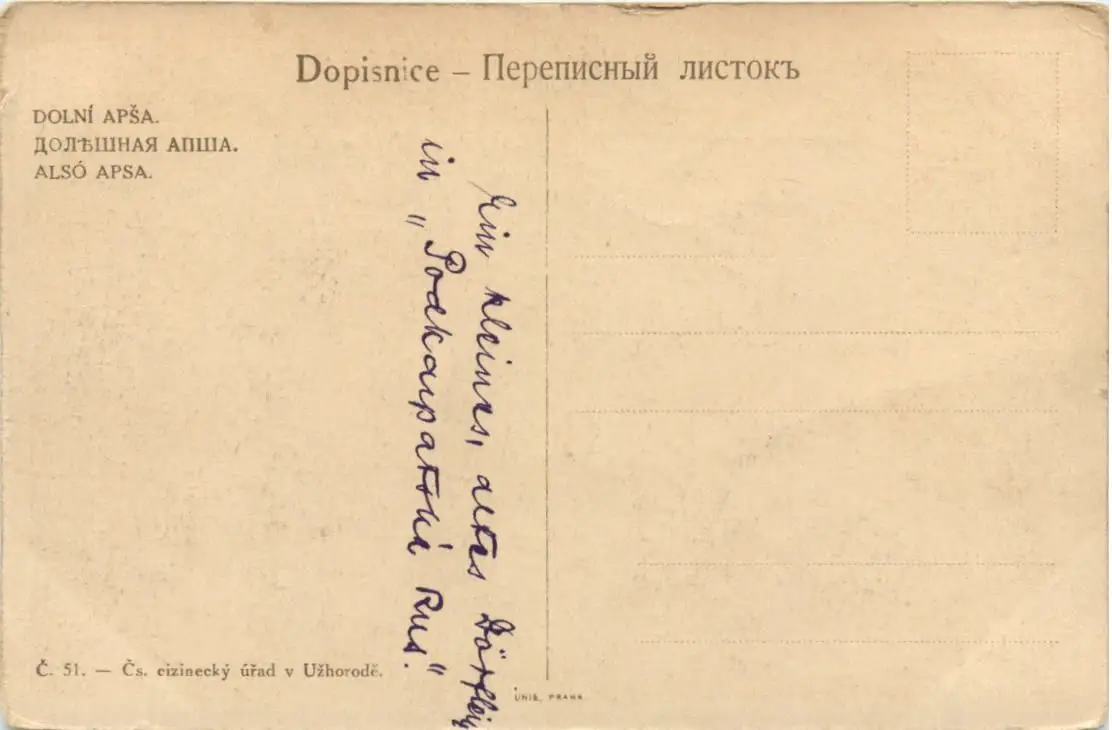 Dopisnice – Переписный листокъ
DOLNÍ APŠA.
ДОЛѢШНАЯ АПША.
ALSÓ APSA.
Ein kleines, altes Dörflein
in „Podkarpatská Rus."
Č. 51. — Čs. cizinecký úřad v Užhorodě.
UNIE, PRAHA